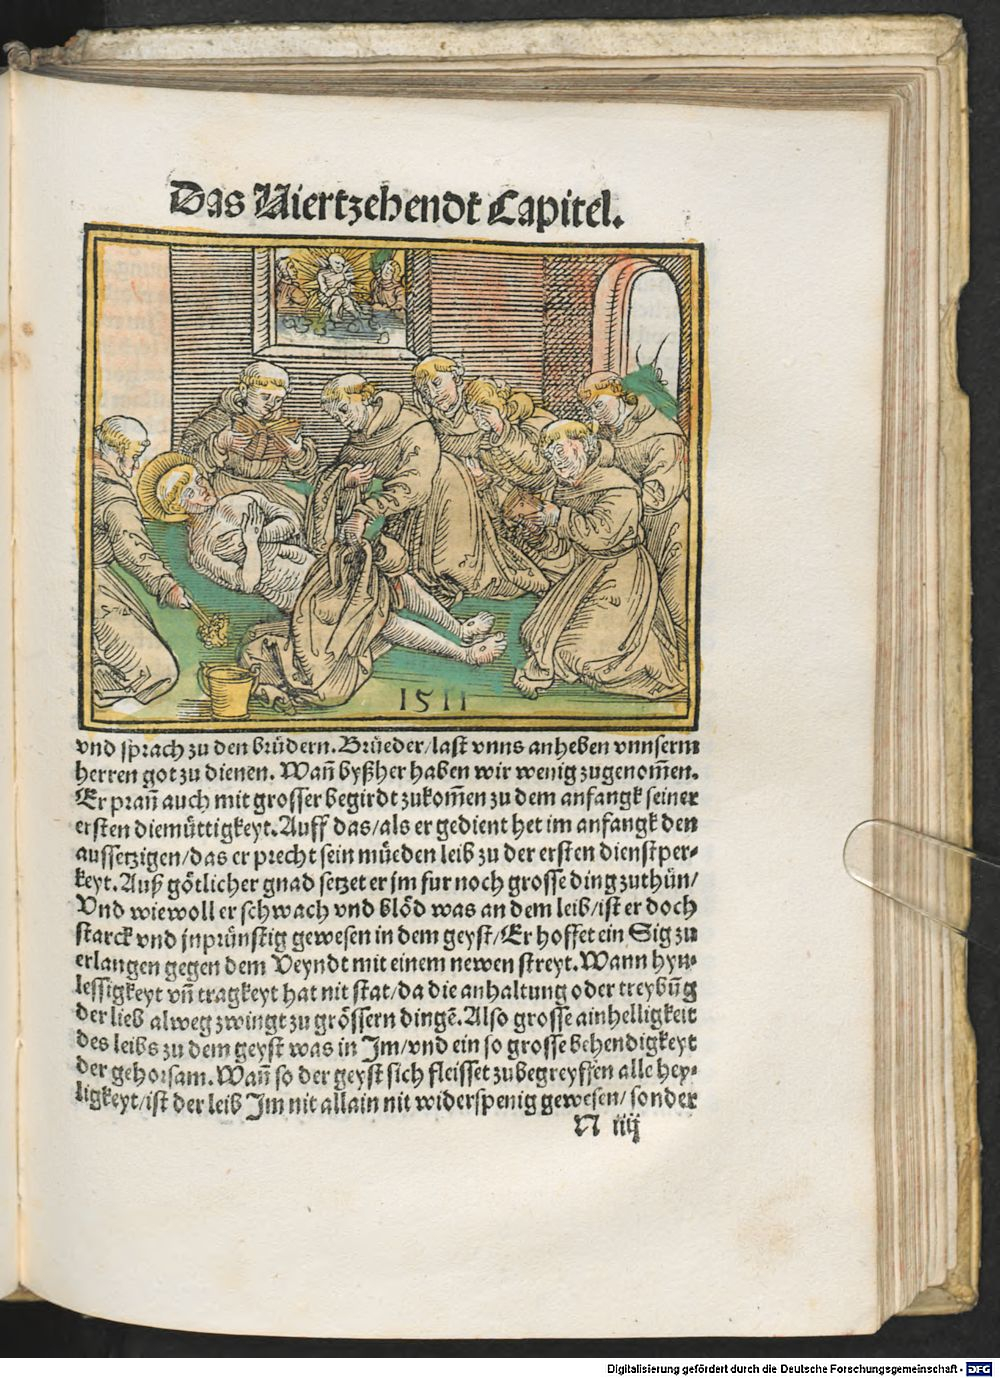 Das Viertzehendt Capitel.
1511
vnd sprach zu den brüdern. Brüeder/last vnns anheben vnnserm
herren got zu dienen. Wañ byßher haben wir wenig zugenom̃en.
Er prañ auch mit grosser begirdt zukom̃en zu dem anfangk seiner
ersten diemüttigkeyt. Auff das/als er gedient het im anfangk den
aussetzigen/das er precht sein müeden leib zu der ersten dienstper⸗
keyt. Auß götlicher gnad setzet er jm fur noch grosse ding zuthün/
Vnd wiewoll er schwach vnd blöd was an dem leib/ist er doch
starck vnd jnprünstig gewesen in dem geyst/Er hoffet ein Sig zu
erlangen gegen dem Veyndt mit einem newen streyt. Wann hyn⸗
lessigkeyt vñ tragkeyt hat nit stat/da die anhaltung oder treybũg
der lieb alweg zwingt zu grössern dingẽ. Also grosse ainhelligkeit
des leibs zu dem geyst was in Jm/vnd ein so grosse behendigkeyt
der gehorsam. Wañ so der geyst sich fleisset zubegreyffen alle hey⸗
ligkeyt/ist der leib Jm nit allain nit widerspenig gewesen/sonder
N iiij
Digitalisierung gefördert durch die Deutsche Forschungsgemeinschaft - DFG